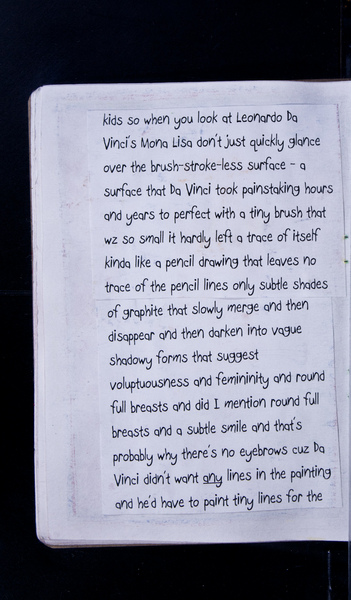 kids so when you look at Leonardo Da
Vinci's Mona Lisa don't just quickly glance
over the brush-stroke-less surface - a
surface that Da Vinci took painstaking hours
and years to perfect with a tiny brush that
wz so small it hardly left a trace of itself
kinda like a pencil drawing that leaves no
trace of the pencil lines only subtle shades
of graphite that slowly merge and then
disappear and then darken into vague
shadowy forms that suggest
voluptuousness and femininity and round
full breasts and did I mention round full
breasts and a subtle smile and that's
probably why there's no eyebrows cuz Da
Vinci didn't want any lines in the painting
and he'd have to paint tiny lines for the